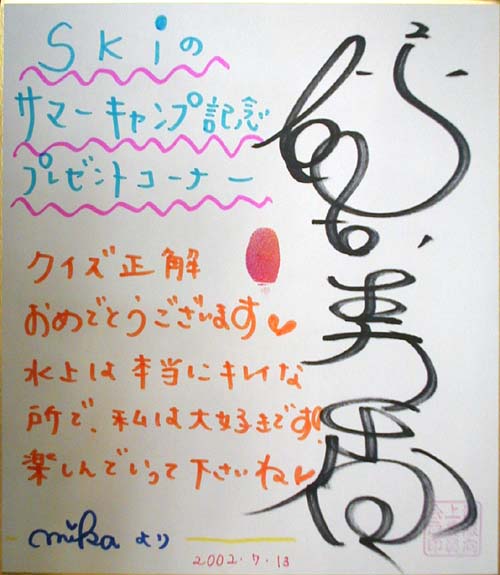 SKiの
サマーキャンプ記念
プレゼントコーナー
クイズ正解
おめでとうございます♥
水上は本当にキレイな
所で、私は大好きです!
楽しんでいって下さいね♥
mikaより
2002.7.13